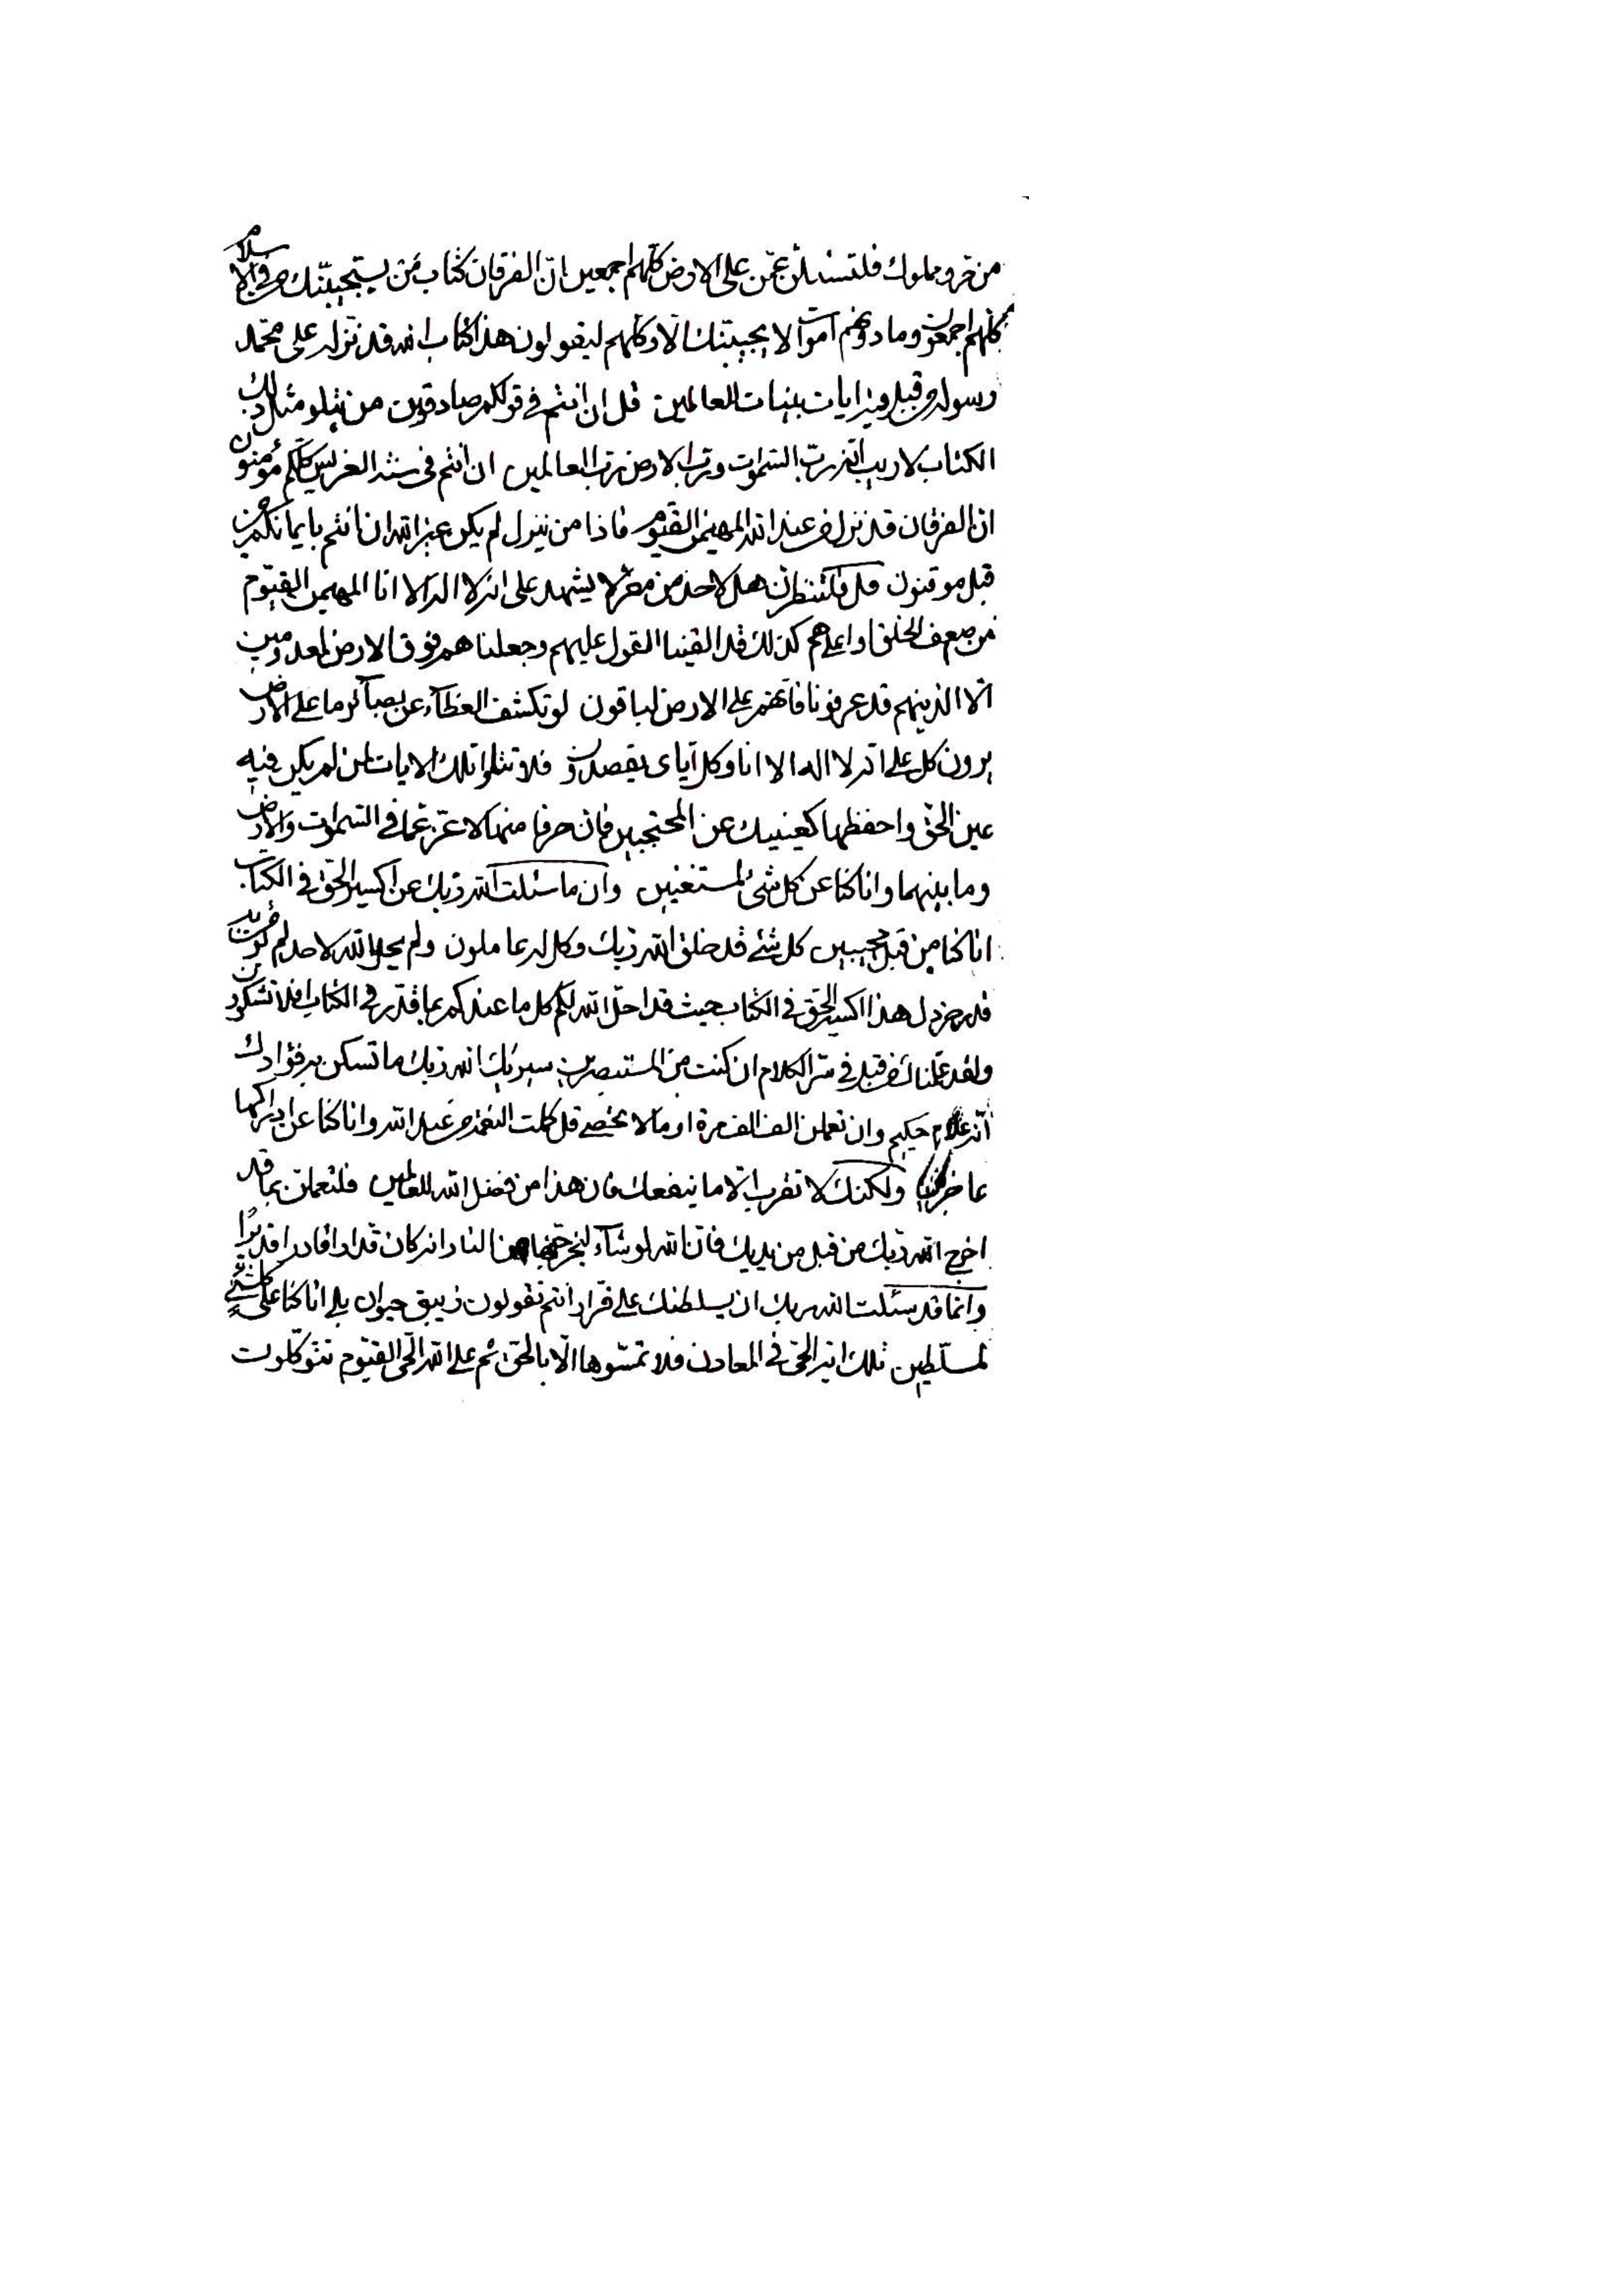 من حر ومملوك فلتسئلن عمن على الارض كلهم اجمعين ان الفرقان كتاب من يستجيبنك من في الاسلام
كلهم اجمعون وما دونهم اموات لا يجيبنك الا وكلهم ليقولون هذا كتاب الله قد نزله على محمد
رسوله من قبل وفيه ايات بينات للعالمين قل ان انتم في قولكم صادقون من يتلو مثل ذلك
الكتاب لا ريب انه رب السموات ورب الارض رب العالمين ان انتم في كلكم مؤمنون
ان الفرقان قد نزل من عند الله المهيمن القيوم فاذا من ينزل لم يكن غير الله ان انتم بايمانكم من
قبل موقنون قل فلتنظرن هل لاحد من مفر لا يشهد على انه لا اله الا انا المهيمن القيوم
من ضعف الخلق او اعلاهم كذلك قد القينا القول عليهم وجعلناهم فوق الارض لمعدومين
الا الذينهم قد عرفونا فانهم على الارض لباقون لو تكشف الغطاء عن بصائر ما على الارض
يرون كل على انه لا اله الا انا وكل اياى يقصدون فلا تتلوا تلك الايات لمن لم يكن فيه
عين الحق واحفظها كعينيك عن المحتجبين فان حرفا منها لاعز عما في السموات والارض
وما بينهما وانا كنا عن كل شئ لمستغنين وان ما سئلت الله ربك عن اكسير الحق في الكتاب
انا كنا من قبل مجيبين كل شئ قد خلق الله ربك وكل له عاملون ولم يحل الله لاحد لم يكن
قدر خردل هذا اكسير الحق في الكتاب حيث قد احل الله لكم كل ما عندكم بما قدر في الكتاب افلا تشكرون
ولقد علمناك من قبل في سر الكلام ان كنت من المستبصرين سيريك الله ربك ما تسكن به فؤادك
انه علام حكيم وان تعملن الف الف مرة او ما لا يحصى قل كلت النعمة من عند الله وانا كنا عن ادراكها
عاجزين ولكنك لا تقرب الا ما ينفعك فان هذا من فضل الله للعالمين فلتعملن بما قد
اخرج الله ربك من قبل من يديك فان الله لو شاء ليخرجنها من النار انه كان قدارا قادرا قديرا
وانما قد سئلت الله ربك ان يسلطنك على فرار انتم تقولون زيبق حيوان بلى انا كنا على كل شئ
لمسلطين تلك الحق في المعادن فلا تمسوها الا بالحق ثم على الله الحى القيوم تتوكلون